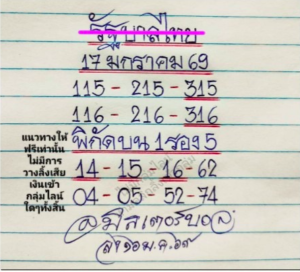 รัฐบาลไทย
17 มกราคม 69
115 - 215 - 315
116 - 216 - 316
แนวทางให้
ฟรีเท่านั้น
ไม่มีการ
วางลิ้งเสีย
เงินเข้า
กลุ่มไลน์
ใดๆทั้งสิ้น
พิกัดบน 1 รอง 5
14 - 15 - 16 - 62
04 - 05 - 52 - 74